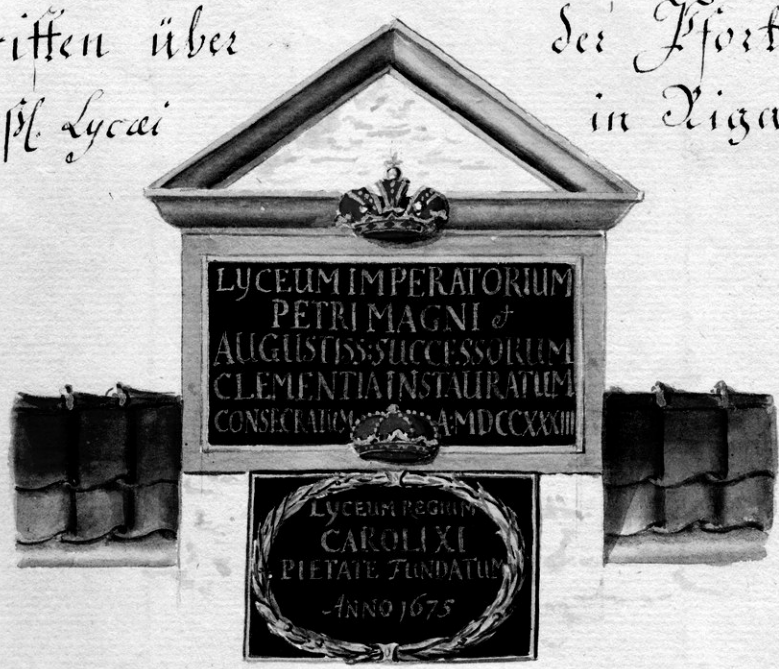 über der
Lycæi in Riga
LYCEUM IMPERATORIUM
PETRI MAGNI et
AUGUSTISS:SUCCESSORUM
CLEMENTIA INSTAURATUM
CONSECRATUM A·MDCCXXXIII
LYCEUM REGIUM
CAROLI XI
PIETATE FUNDATUM
ANNO 1675